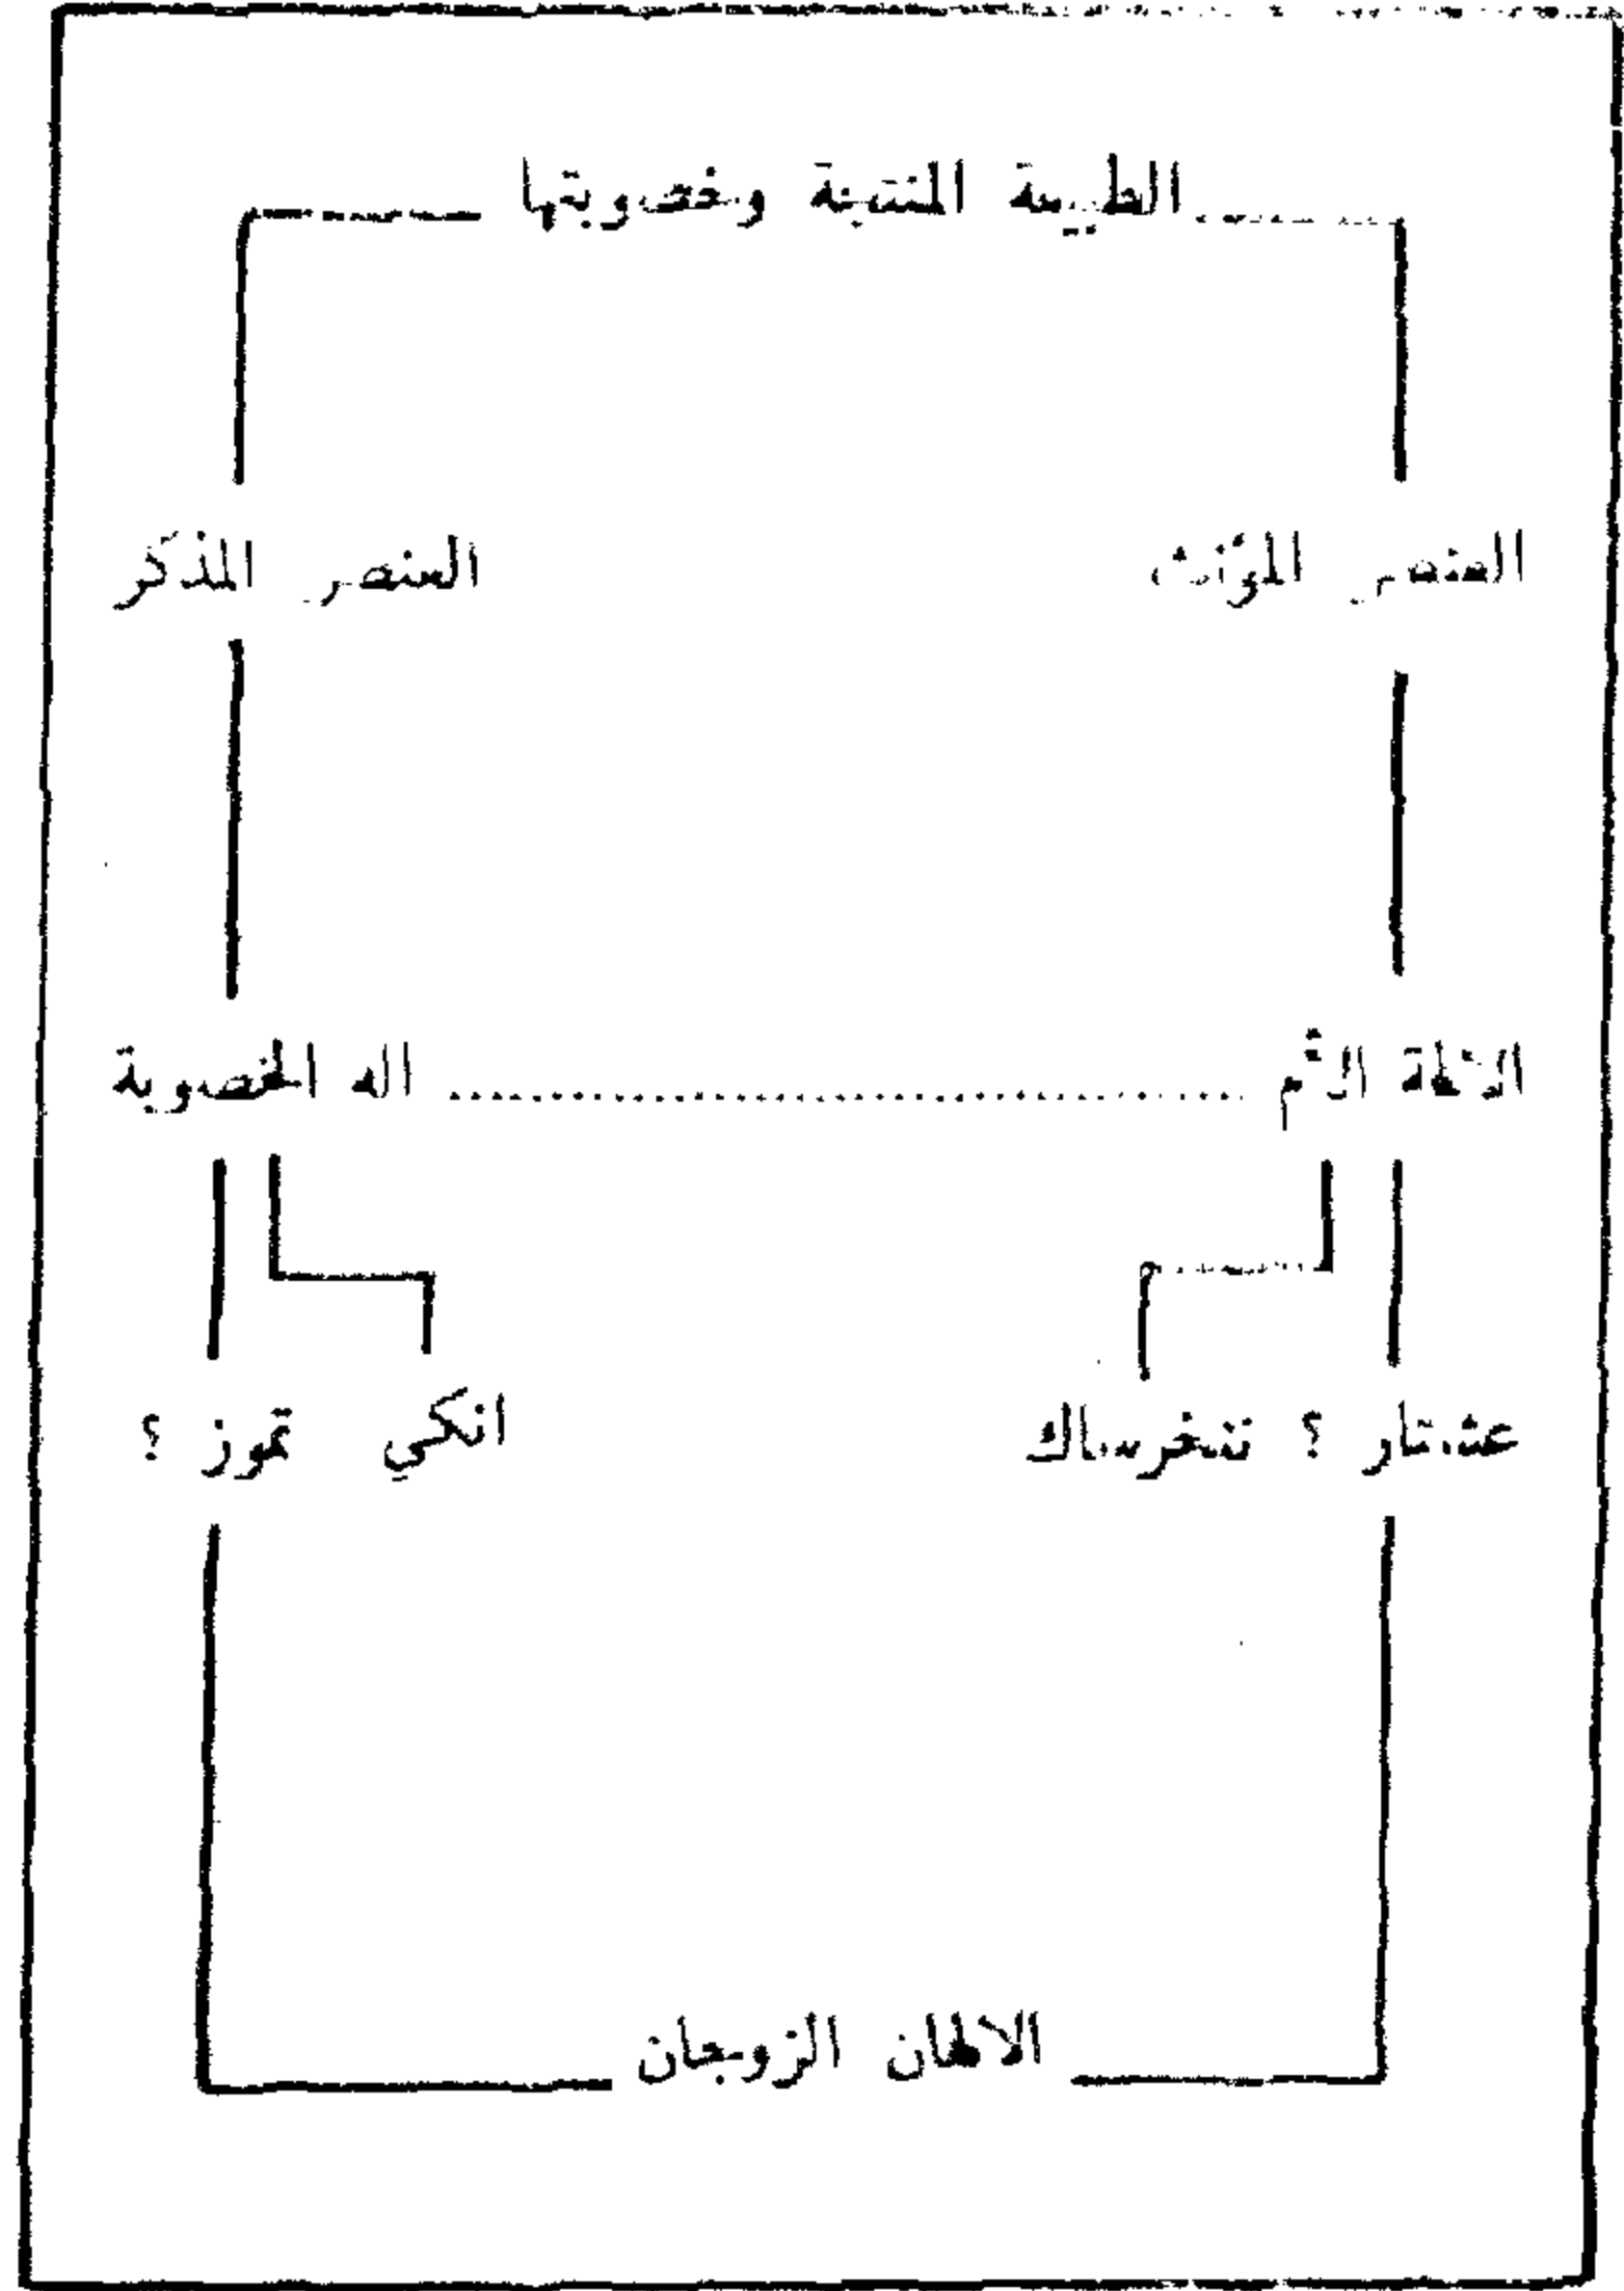 الطبيعة المنتجة وخصوبتها
العنصر المؤنث العنصر المذكر
الالهة الأم .......................................... اله الخصوبة
عشتار ؟ ننخرساك انكي تموز ؟
الالهان الزوجان